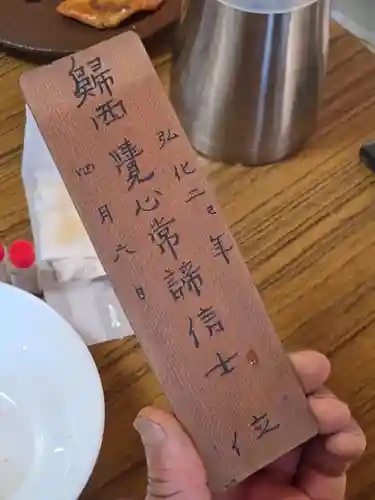 弘化二乙年
歸西覺心常諦信士 位
四月六日